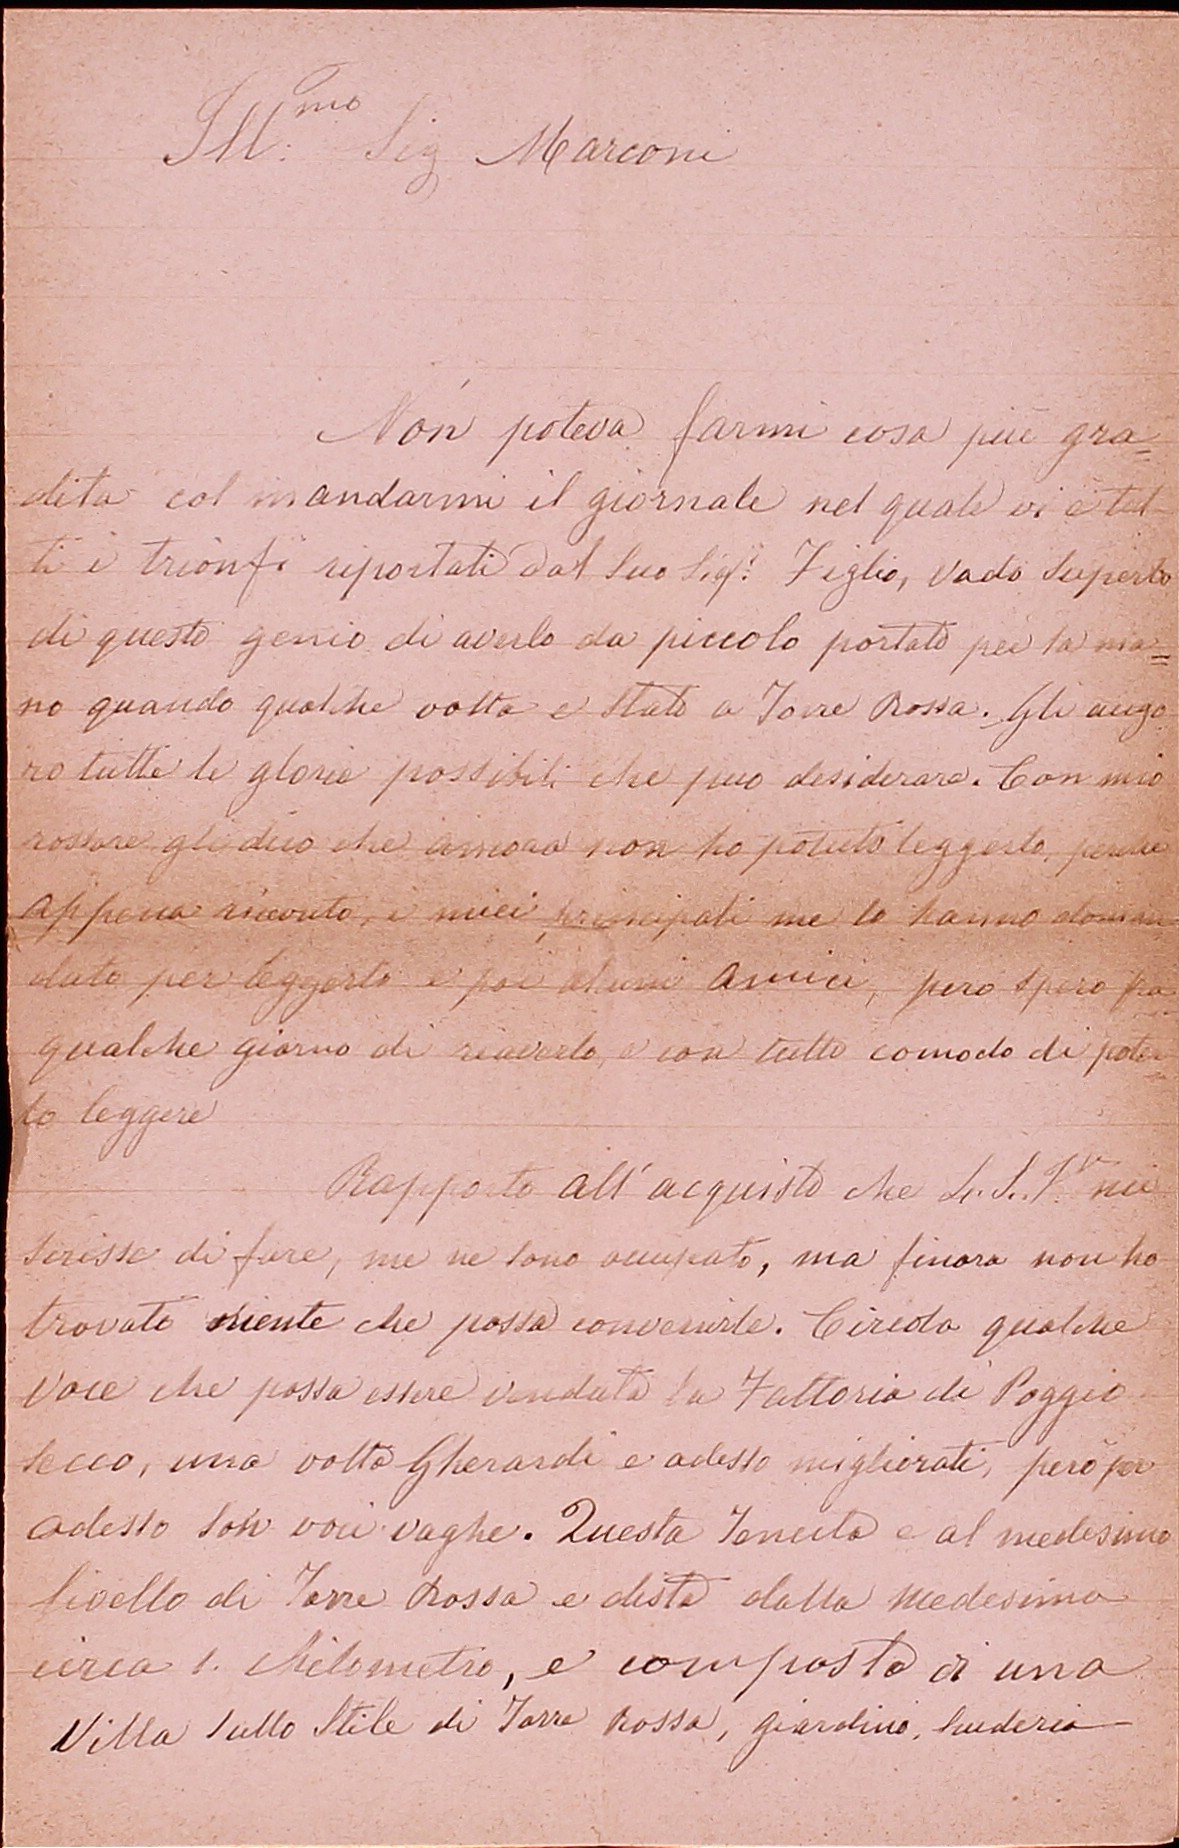 Ill:mo Sig Marconi
Nón poteva farmi cosa più gra=
dita col mandarmi il giornale nel quale vi è tut
ti i trionfi riportati dal Suo Sigr: Figlio, vado superbo
di questo genio di averlo da piccolo portato per la ma=
no quando qualche volta e stato a Torre Rossa. Gli augo
ro tutte le glorie possibili che puo desiderare. Con mio
rossore gli dico che ancora non ho potuto leggerlo, perche
appena ricevuto, i miei principali me lo hanno doman
dato per leggerlo e poi alcuni amici, pero spero fra
qualche giorno di riaverlo, e con tutto comodo di poter
lo leggere
Rapporto all'acquisto che L. S. Ia mi
scrisse di fare, me ne sono occupato, ma finora non ho
trovato niente che possa convenirle. Circola qualche
voce che possa essere venduta la Fattoria di Poggio
secco, una volta Gherardi e adesso migliorati, però per
adesso són voci vaghe. Questa Tenuta e al medesimo
livello di Torre Rossa e dista dalla medesima
circa 1. Chilometro, e composta di una
Villa sullo Stile di Torre Rossa, giardino, scuderia